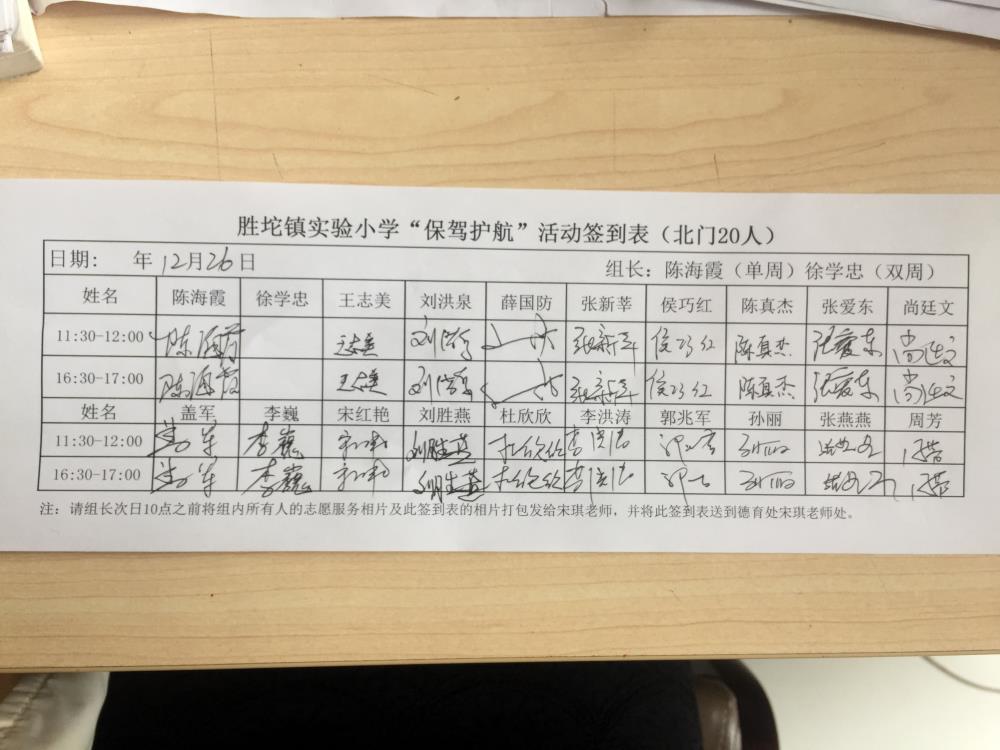 胜坨镇实验小学“保驾护航”活动签到表（北门20人）
日期： 年 12月26日 组长：陈海霞（单周）徐学忠（双周）
姓名 陈海霞 徐学忠 王志美 刘洪泉 薛国防 张新莘 侯巧红 陈真杰 张爱东 尚廷文
11:30-12:00 陈海霞 侯巧红 陈真杰 张爱东 尚廷文
16:30-17:00 陈海霞 侯巧红 陈真杰 张爱东 尚廷文
姓名 盖军 李巍 宋红艳 刘胜燕 杜欣欣 李洪涛 郭兆军 孙丽 张燕燕 周芳
11:30-12:00 李巍 刘胜燕 孙丽
16:30-17:00 李巍 刘胜燕 孙丽
注：请组长次日10点之前将组内所有人的志愿服务相片及此签到表的相片打包发给宋琪老师，并将此签到表送到德育处宋琪老师处。